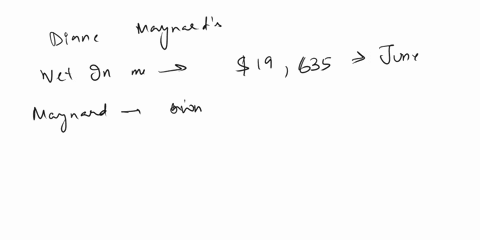 Diane Maynard's
Net In m → $19,635 → June
Maynard →